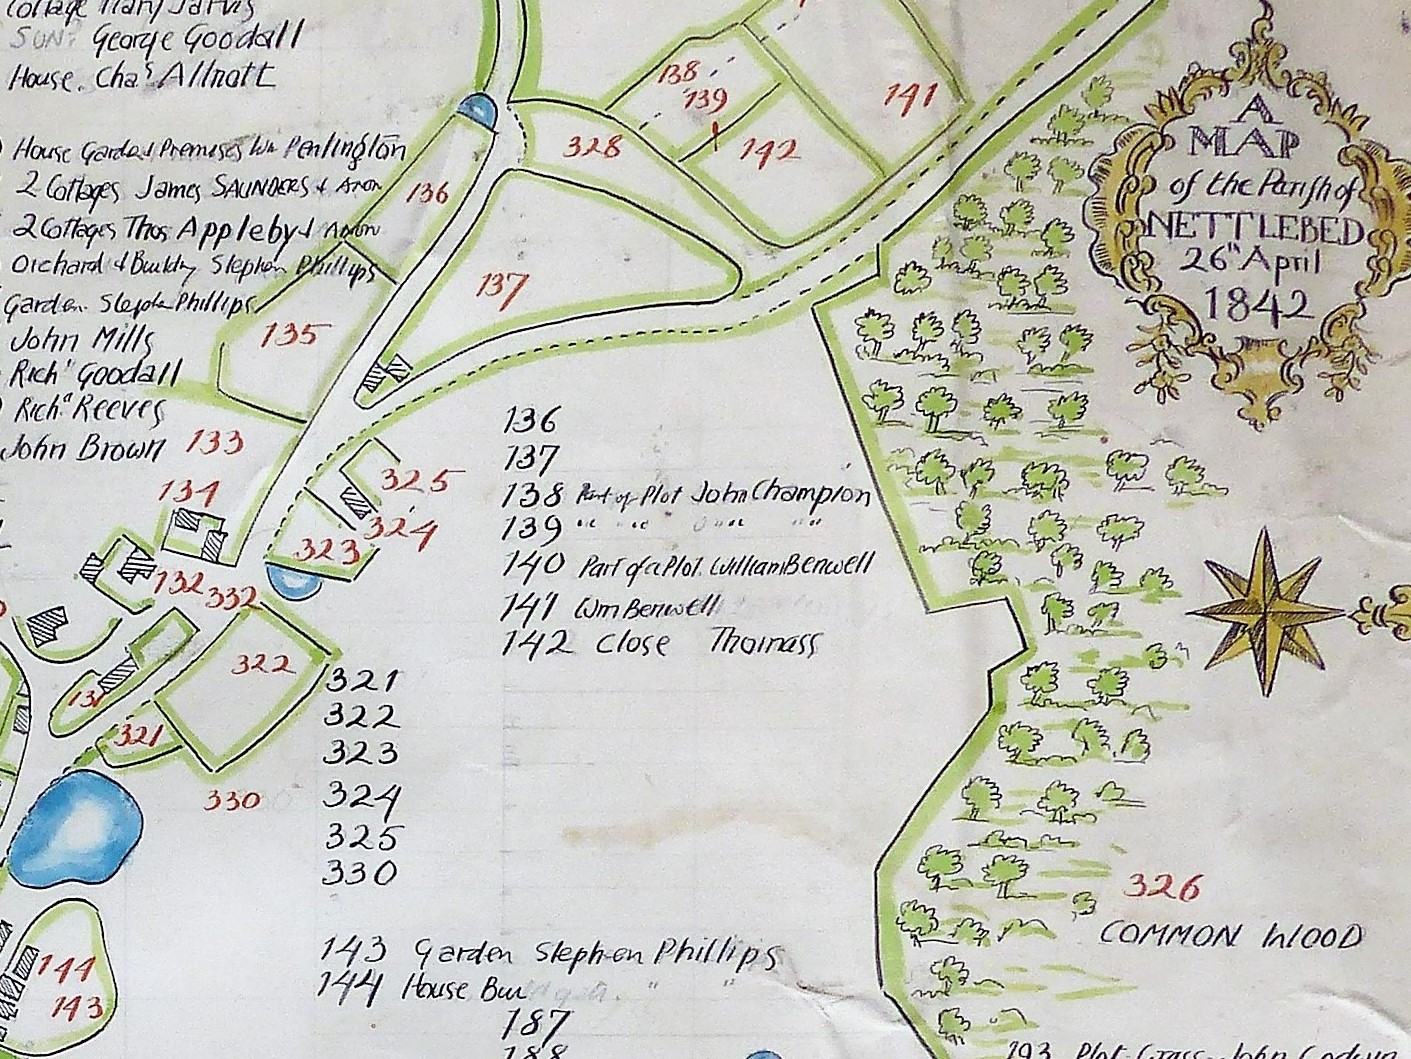 George Goodall
House. Chas Allnatt
House Garden Premises Wm Penlington
2 Cottages James SAUNDERS & Anon
2 Cottages Thos Appleby & Anon
Orchard & Buildg Stephen Phillips
Garden. Stephen Phillips
John Mills
Richd Goodall
Richd Reeves
John Brown
138
139
141
142
328
136
137
135
133
134
325
324
323
132 332
322
131
321
330
144
143
A
MAP
of the Parish of
NETTLEBED
26th April
1842
136
137
138 Part of Plot John Champion
139 " " " " "
140 Part of a Plot. William Benwell
141 Wm Benwell
142 Close Thomass
321
322
323
324
325
330
143 Garden Stephen Phillips
144 House " "
187
188
326
COMMON WOOD
193 Plot Grass John Godwin